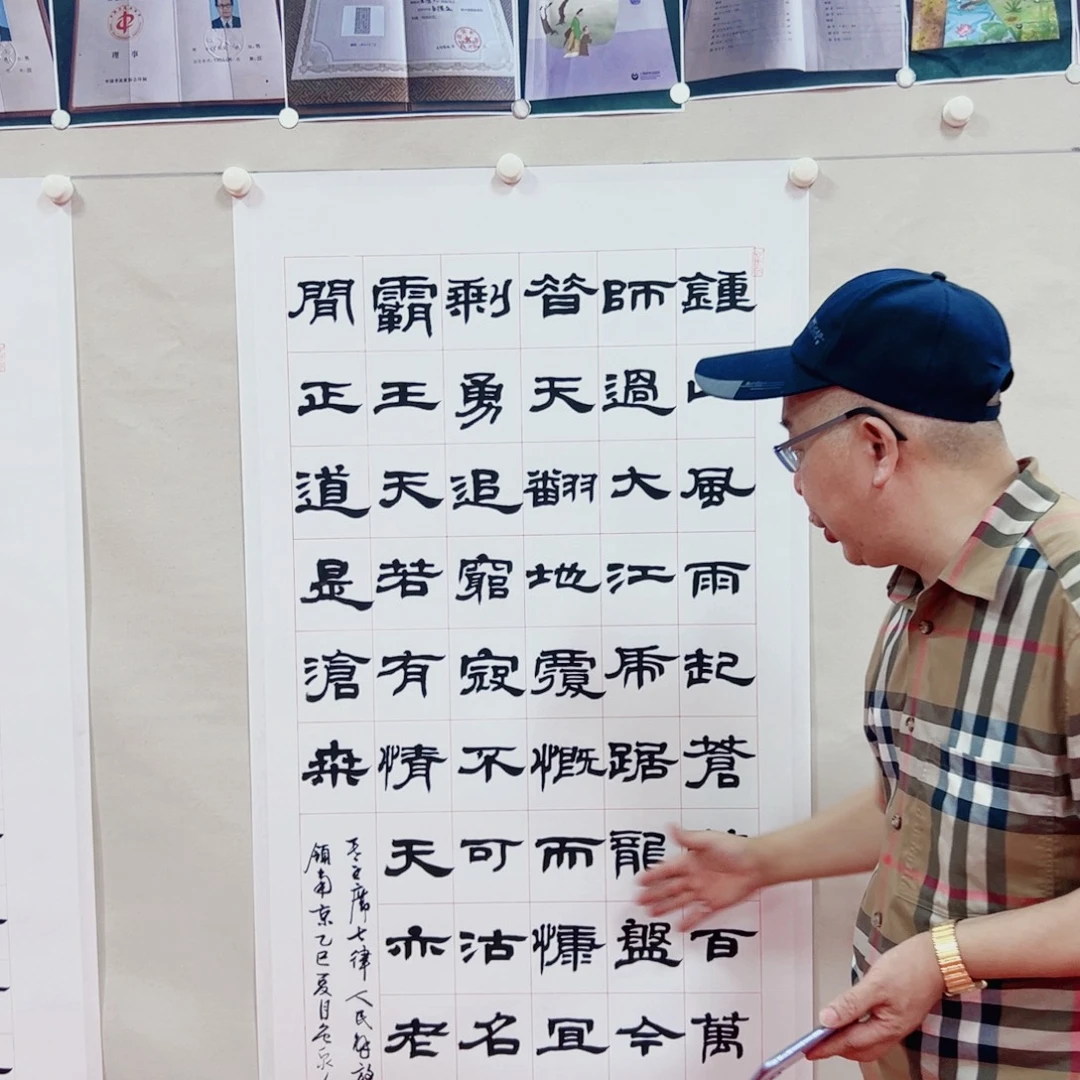 理事
鍾風雨起蒼百萬
師過大江虎踞龍盤今
昔天翻地覆慨而慷宜
剩勇追窮寇不可沽名
霸王天若有情天亦老
間正道是滄桑
毛主席七律人民解放
領南京乙巳夏月